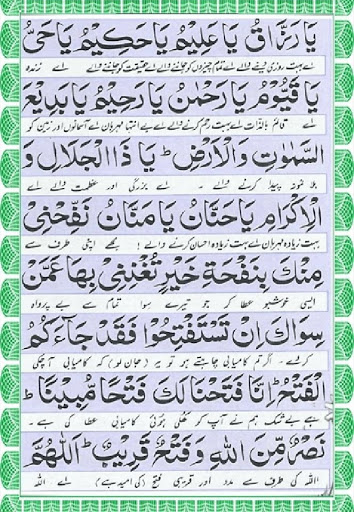 يَا رَزَّاقُ يَا عَلِيْمُ يَا حَكِيْمُ يَا حَىُّ
اے بہت روزی دینے والے اے تمام چیزوں کو جاننے والے اے حقیقت کو جاننے والے اے زندہ
يَا قَيُّوْمُ يَا رَحْمٰنُ يَا رَحِيْمُ يَا بَدِيْعَ
اے قائم بالذات اے بہت رحم کرنے والے اے بے انتہا مہربان اے آسمانوں اور زمین کو
السَّمٰوٰتِ وَالْاَرْضِ ط يَا ذَا الْجَلَالِ وَ
بلا نمونہ پیدا کرنے والے ۔ اے بزرگی اور عظمت والے اے
الْاِكْرَامِ يَا حَنَّانُ يَا مَنَّانُ نَفِّحْنِىْ
بہت زیادہ مہربان اے بہت زیادہ احسان کرنے والے ! مجھے اپنی طرف سے
مِنْكَ بِنَفْحَةِ خَيْرٍ تُغْنِنِىْ بِهَا عَمَّنْ
ایسی خوشبو عطا کر جو تیرے سوا تمام سے بے پرواہ
سِوَاكَ اِنْ تَسْتَفْتِحُوْا فَقَدْ جَآءَكُمُ
کر دے ۔ اگر تم کامیابی چاہتے ہو تو یہ (جان لو) کہ کامیابی آچکی
الْفَتْحُ ط اِنَّا فَتَحْنَا لَكَ فَتْحًا مُّبِيْنًا ط
ہے بے شک ہم نے آپ کو کھلی ہوئی کامیابی عطا کی ہے ۔
نَصْرٌ مِّنَ اللهِ وَفَتْحٌ قَرِيْبٌ ط اَللّٰهُمَّ
اللہ کی طرف سے مدد اور قریبی فتح (کی امید ہے) اے اللہ